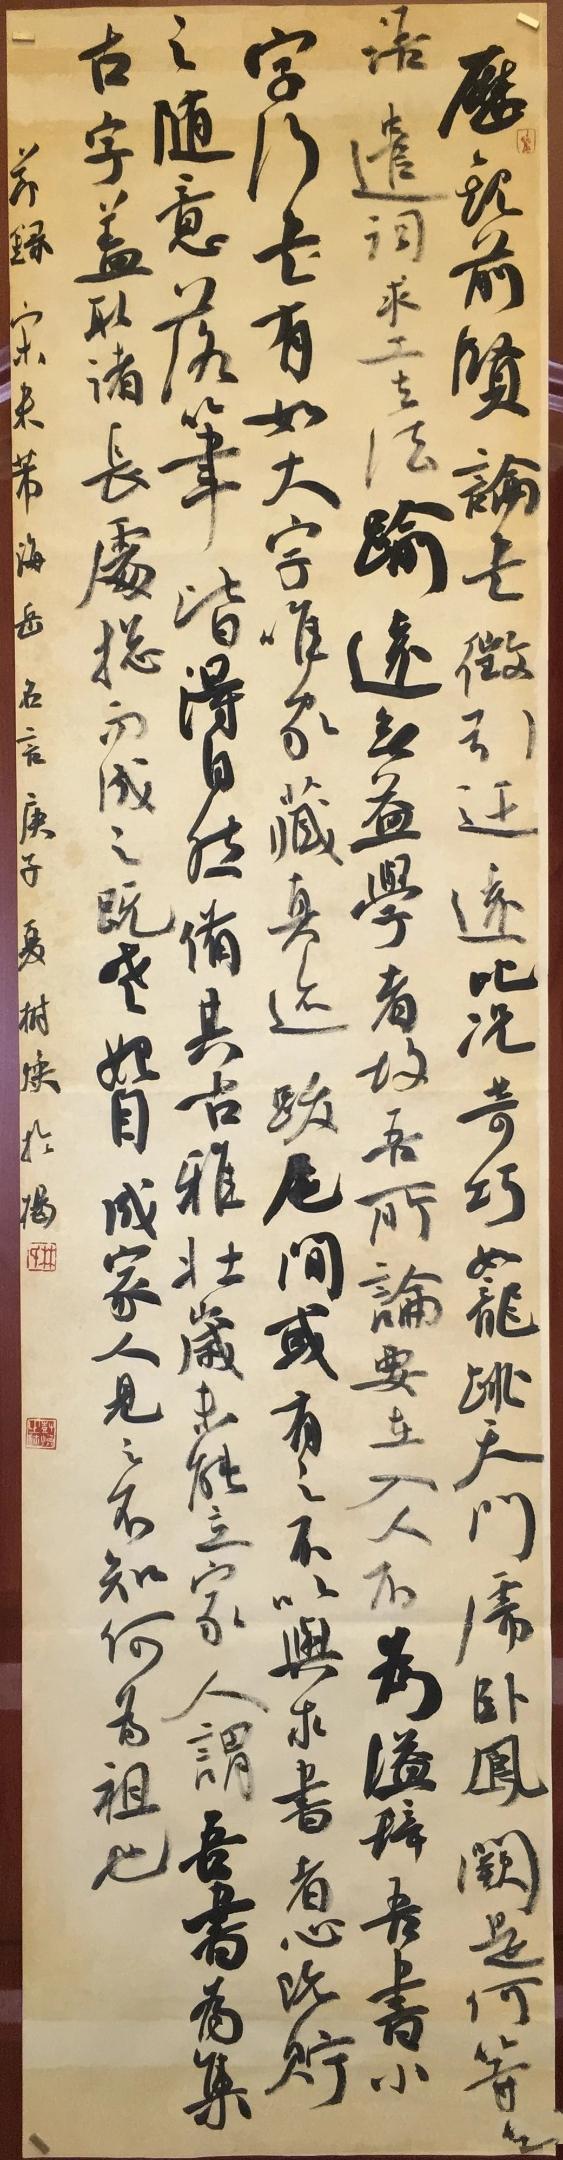 歷觀前賢論書徵引迂遠比況奇巧如龍跳天門虎卧鳳闕是何等
語遣詞求工去法踰遠無益學者故吾所論要在入人不為溢辭吾書小
字行書有如大字唯家藏真迹跋尾間或有之不以與求書者心既貯
之隨意落筆皆得自然備其古雅壯歲未能立家人謂吾書為集
古字蓋取諸長處總而成之既老始自成家人見之不知何為祖也
節錄宋米芾海岳名言庚子夏樹